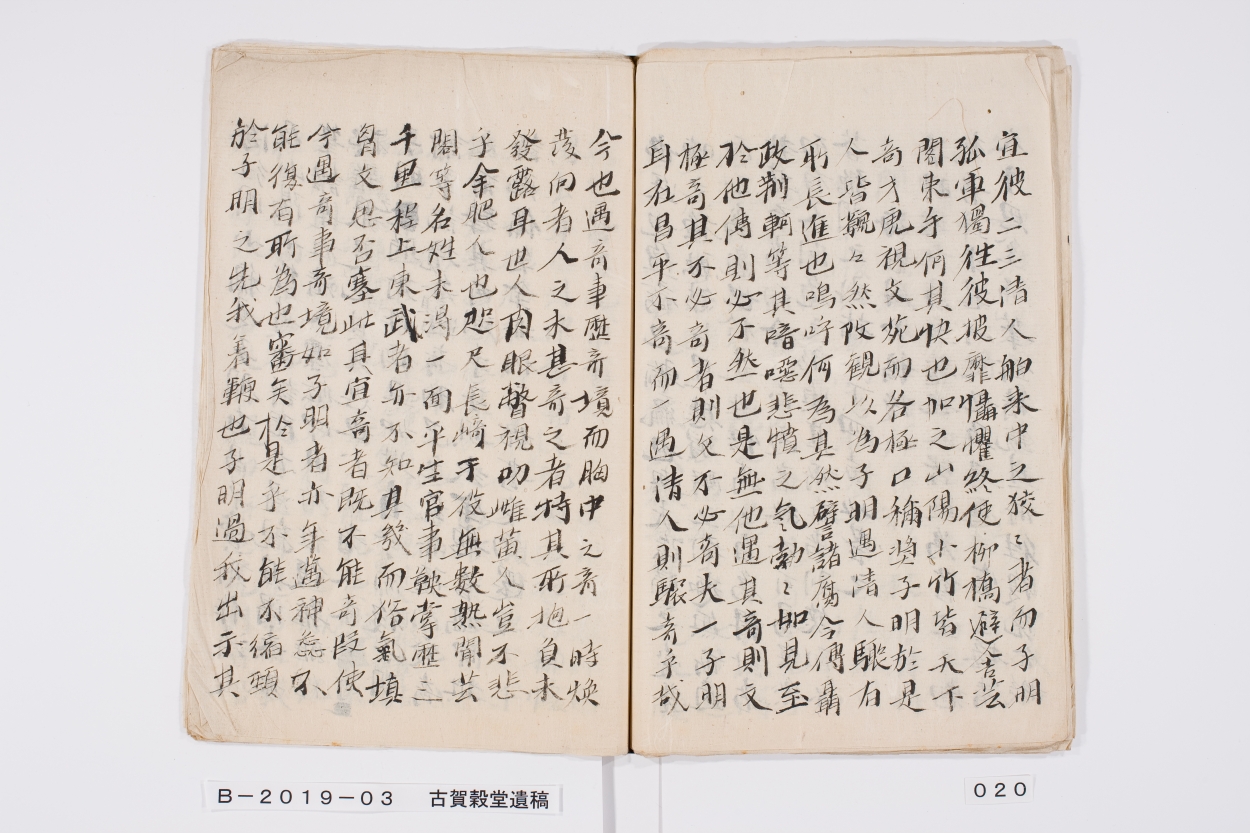 宜彼二三清人舶来中之狡〻者而子明
孤軍獨往彼披靡懾懼終使柳橋避人言芸
閣東手何其快也加之山陽小竹皆天下
奇才虎視文苑而各極口稱奬子明於是
人皆飄〻然改觀以為子明遇清人驟有
所長進也嗚呼何為其然譬諸腐令傳聶
政荊軻等其喑噁悲憤之氣勃〻如見至
於他傳則必不然也是無他遇其奇則文
極奇其不必奇者則文不必奇夫一子明
耳在昌平不奇而一遇清人則驟奇乎哉
今也遇奇事歴奇境而胸中之奇一時煥
發向者人之未甚奇之者特其所抱負未
發露耳世人肉眼瞥視叨雌黄人豈不悲
乎余肥人也咫尺長崎于役無數熟聞芸
閣等名姓未渇一面平生官事鞅掌歴三
千里程上東武者亦不知其幾而俗氣填
胷文思否塞此其宜奇者既不能奇叚使
今遇奇事奇境如子明者亦年邁神怠不
能復有所為也審矣於是乎不能不縮頸
於子明之先我着鞭也子明過我出示其
B－2019－03　古賀穀堂遺稿
020